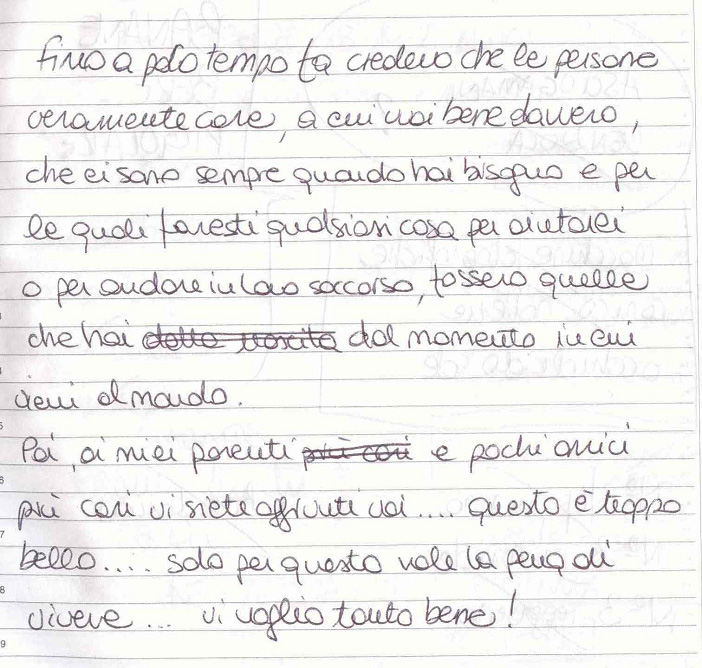 fino a poco tempo fa credevo che le persone
veramente care, a cui vuoi bene davvero,
che ci sono sempre quando hai bisogno e per
le quali faresti qualsiasi cosa per aiutarci
o per andare in loro soccorso, fossero quelle
che hai ~~dalla nascita~~ dal momento in cui
vieni al mondo.
Poi, ai miei parenti ~~più cari~~ e pochi amici
più cari vi siete aggiunti voi.... questo è troppo
bello.... solo per questo vale la pena di
vivere ... vi voglio tanto bene!